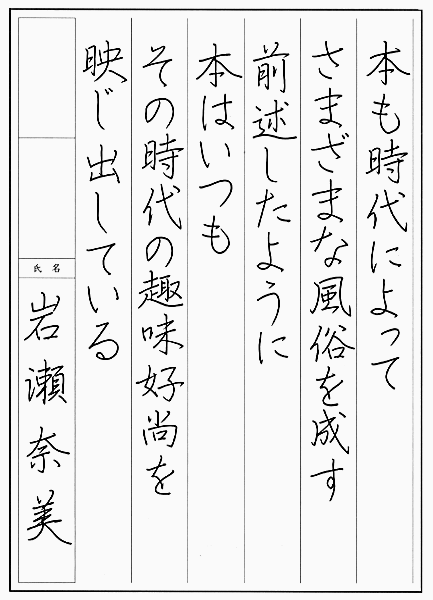 本も時代によって
さまざまな風俗を成す
前述したように
本はいつも
その時代の趣味好尚を
映じ出している
氏名
岩瀬奈美